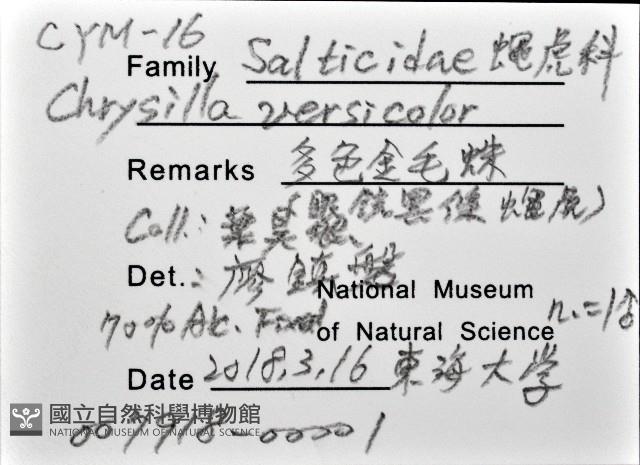 CYM-16
Family Salticidae 蠅虎科
Chrysilla versicolor
Remarks 多色金毛蛛
異條蠅虎)
Coll.: 葉
Det.: 廖鎮磐
National Museum
70% Alc. Fixed of Natural Science n.=1
Date 2018.3.16 東海大学
國立自然科學博物館
NATIONAL MUSEUM OF NATURAL SCIENCE
00001